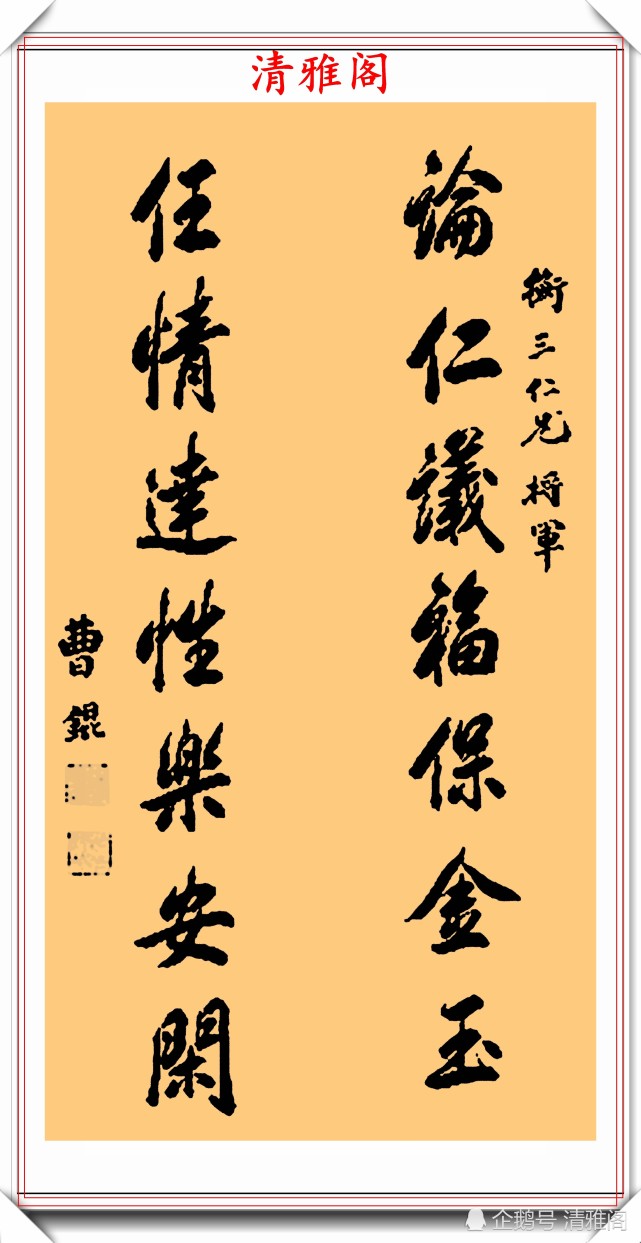 清雅阁
衡三仁兄将軍
論仁議福保金玉
任情達性樂安閑
曹錕
企鹅号 清雅阁